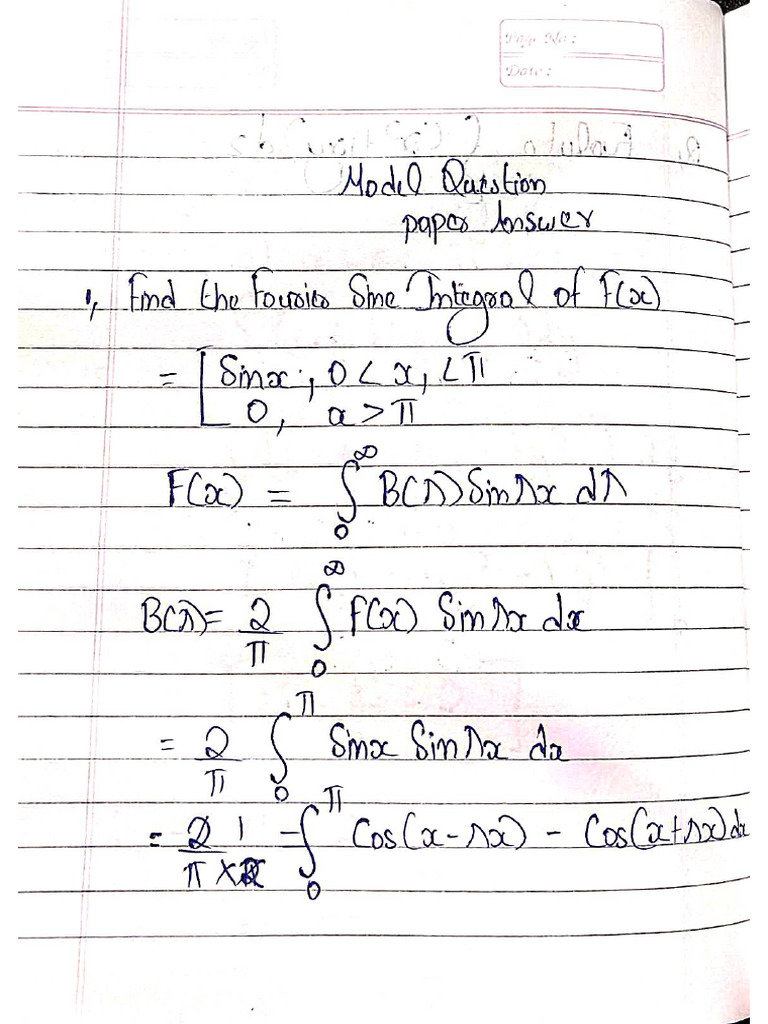 Page No:
Date:
Model Question
paper Answer
1, Find the Fourier Sine Integral of F(x)
= [ Sinx, 0 < x, < π
0, x > π
F(x) = ∫₀^∞ B(λ) Sinλx dλ
B(λ) = 2/π ∫₀^∞ F(x) Sinλx dx
= 2/π ∫₀^π Sinx Sinλx dx
= 2/π × 1/2 ∫₀^π Cos(x-λx) - Cos(x+λx) dx